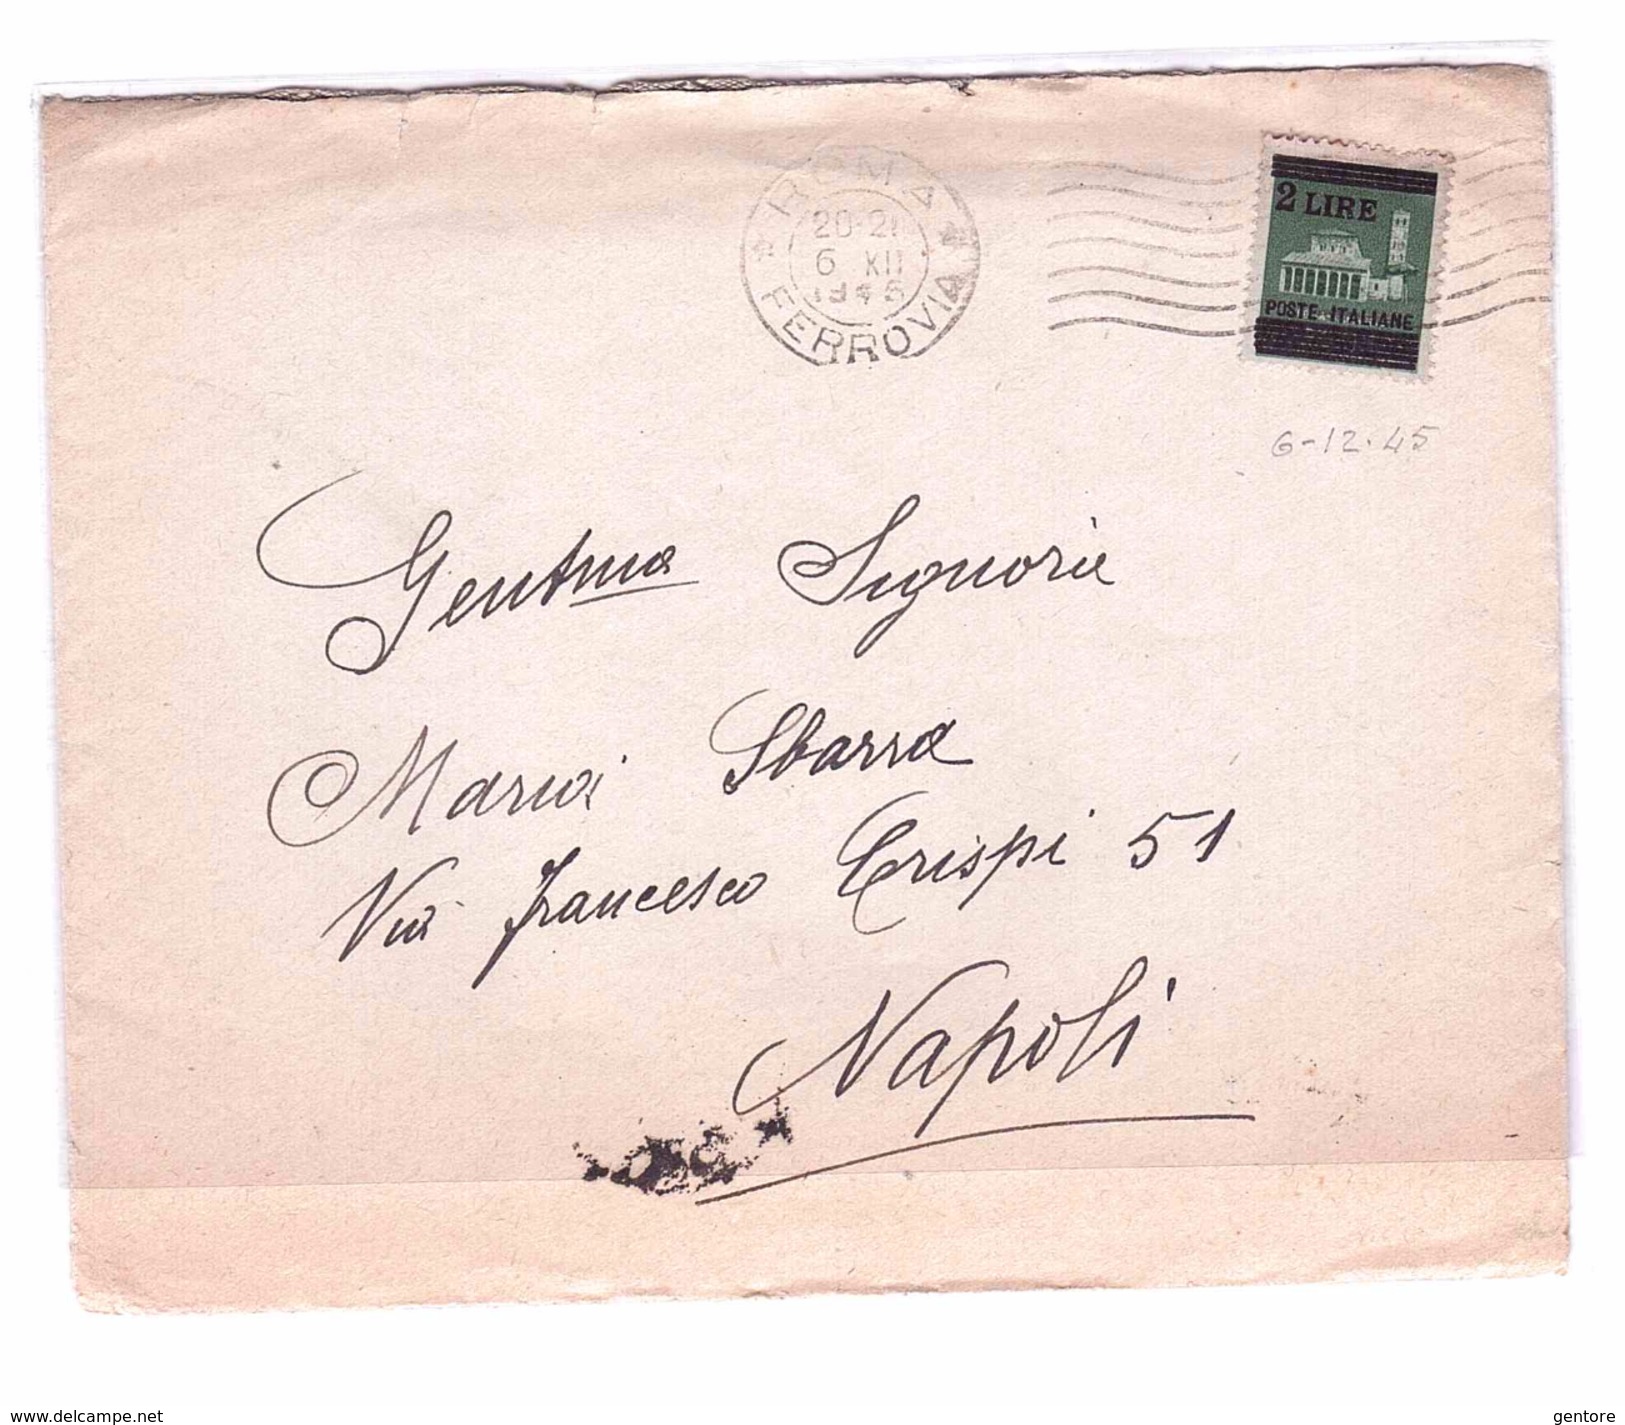 ROMA
20-21
6 XII
1945
FERROVIA
2 LIRE
POSTE ITALIANE
6-12-45
Gentma Signora
Maria Sbarra
Via Francesco Crispi 51
Napoli
www.delcampe.net
gentore